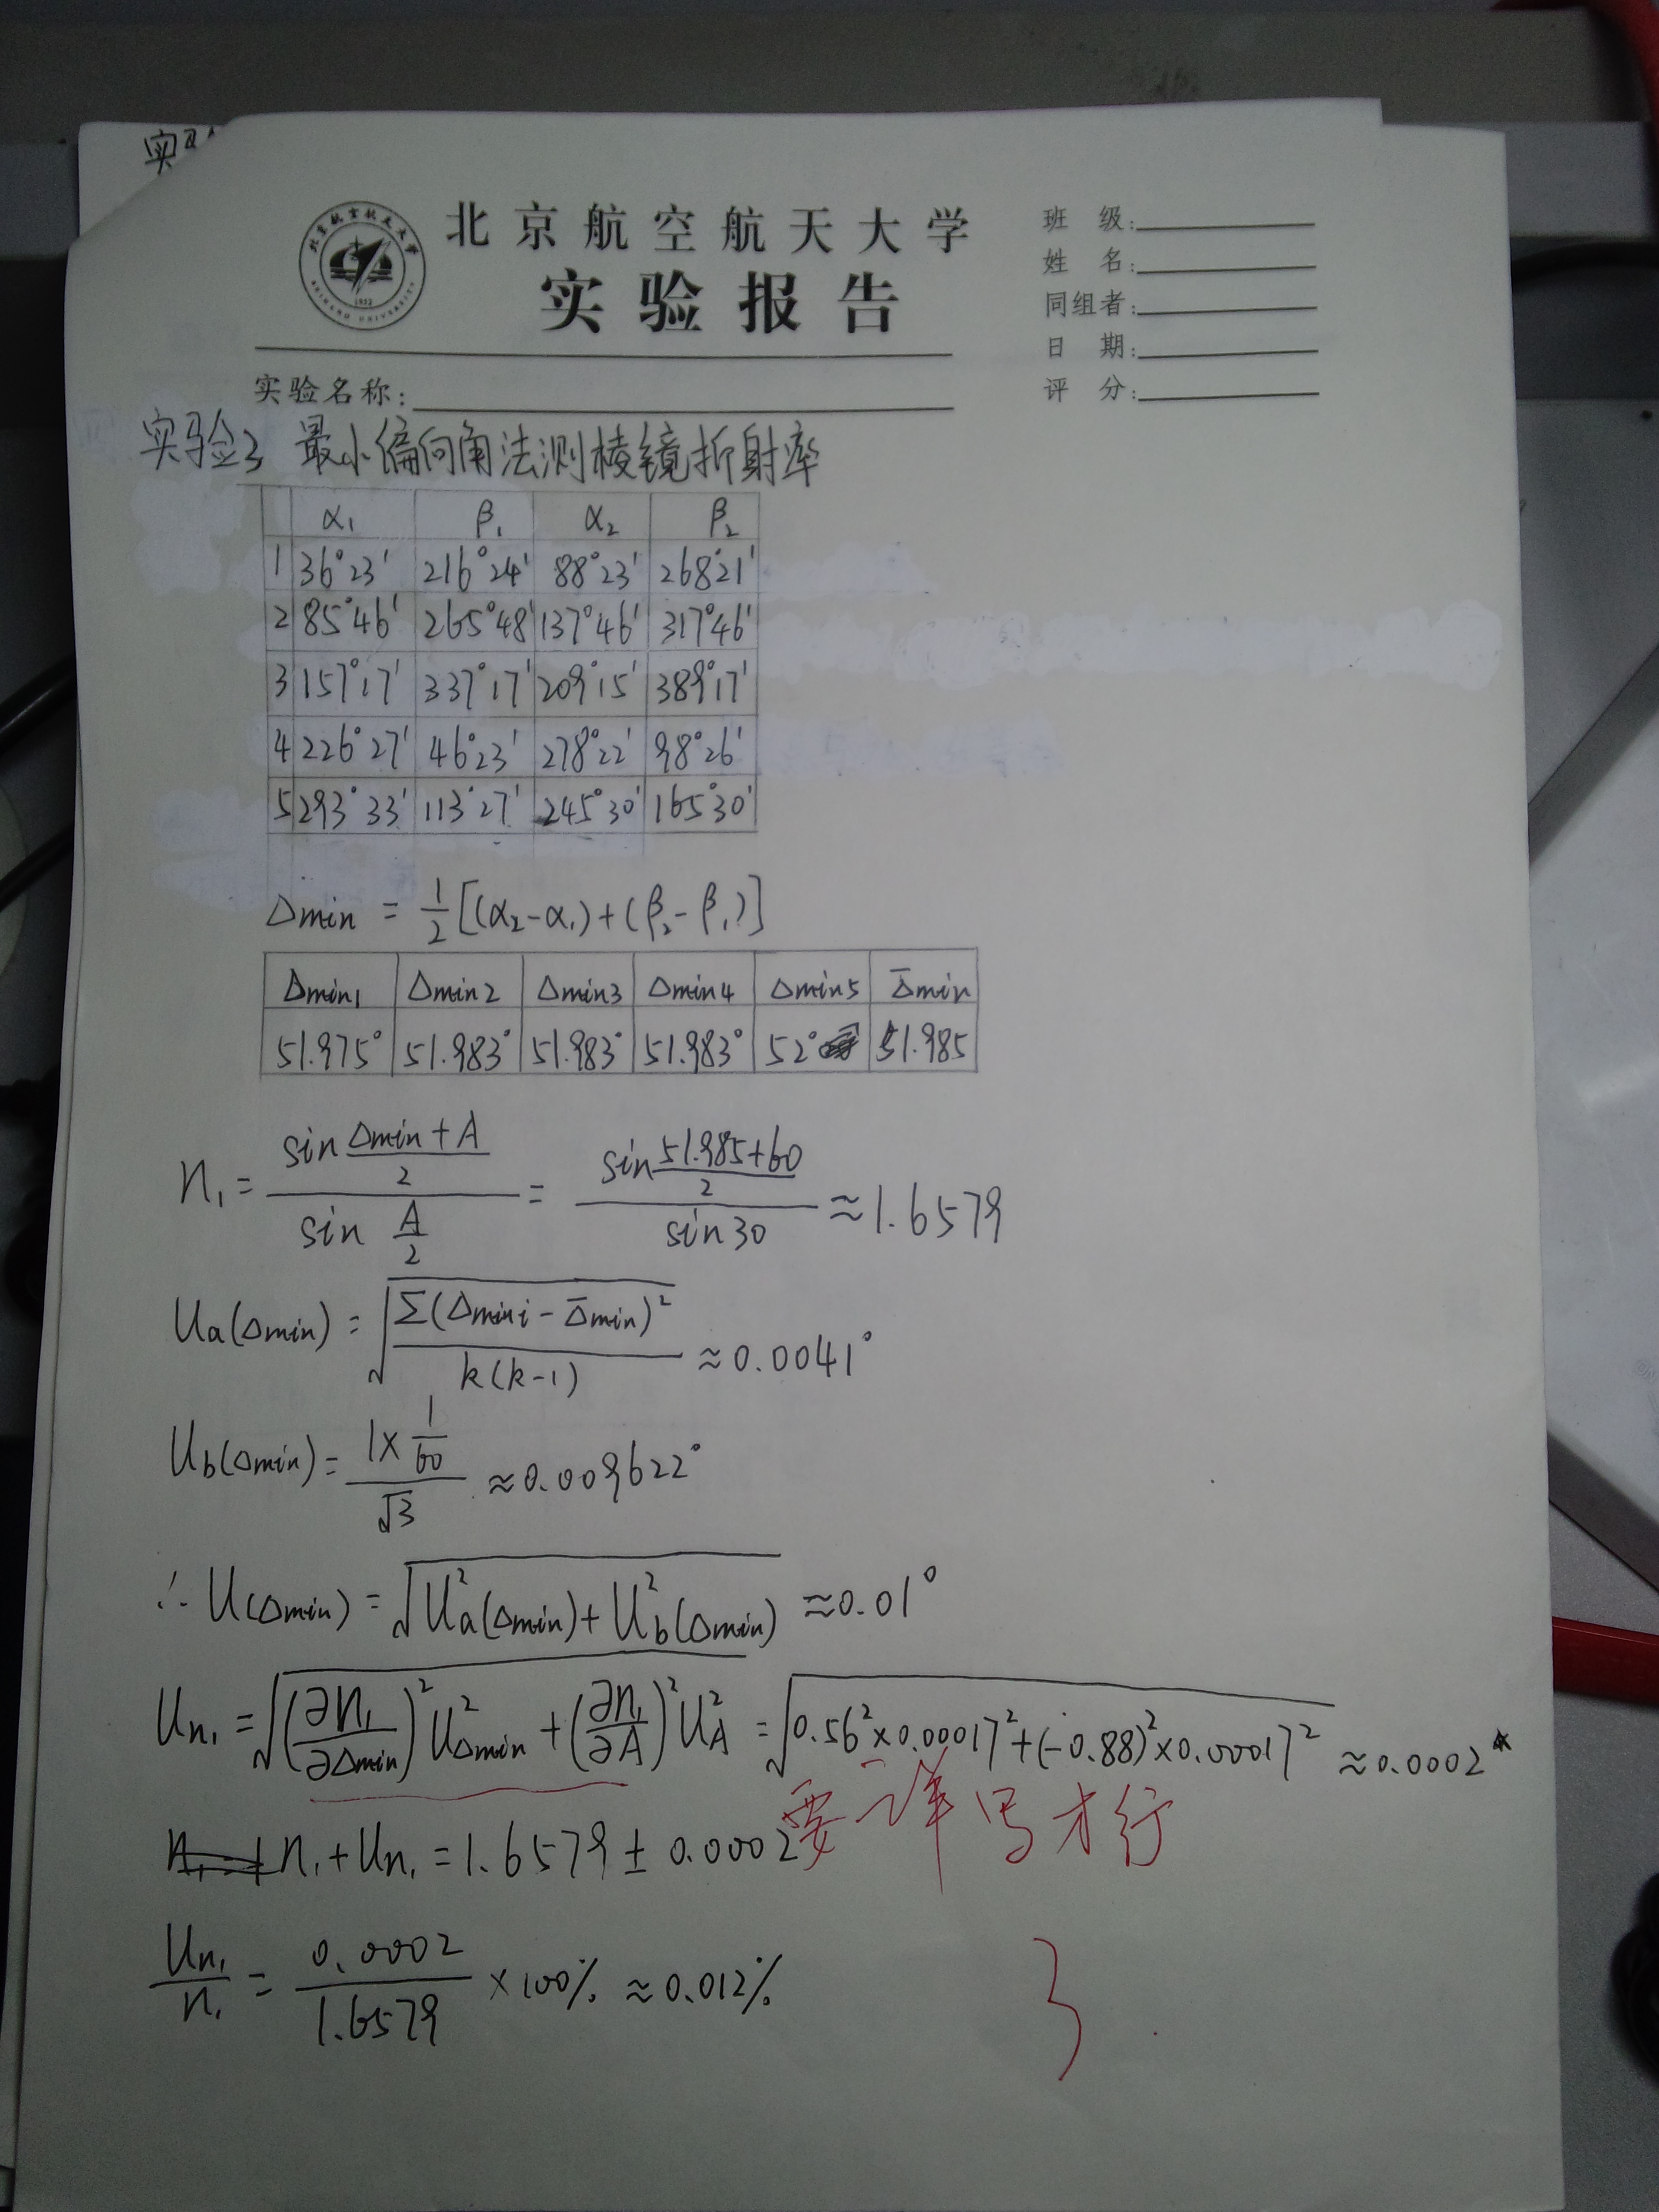 实验
北京航空航天大学
实验报告
班 级:
姓 名:
同组者:
日 期:
评 分:
实验名称:
实验3 最小偏向角法测棱镜折射率
α₁ β₁ α₂ β₂
1 36°23′ 216°24′ 88°23′ 268°21′
2 85°46′ 265°48′ 137°46′ 317°46′
3 157°17′ 337°17′ 209°15′ 389°17′
4 226°27′ 46°23′ 278°22′ 98°26′
5 293°33′ 113°27′ 245°30′ 165°30′
Δmin = 1/2[(α₂-α₁)+(β₂-β₁)]
Δmin1 Δmin2 Δmin3 Δmin4 Δmin5 Δ̄min
51.975° 51.983° 51.983° 51.983° 52° 51.985
n₁ = sin((Δmin+A)/2) / sin(A/2) = sin((51.985+60)/2) / sin30 ≈ 1.6579
Ua(Δmin) = √(Σ(Δmini - Δ̄min)² / k(k-1)) ≈ 0.0041°
Ub(Δmin) = (1×1/60)/√3 ≈ 0.009622°
∴ U(Δmin) = √(Ua²(Δmin)+Ub²(Δmin)) ≈ 0.01°
Un₁ = √((∂n₁/∂Δmin)²U²Δmin + (∂n₁/∂A)²U²A) = √(0.56²×0.00017²+(-0.88)²×0.00017²) ≈ 0.0002
要详写才行
n₁+Un₁ = 1.6579 ± 0.0002
Un₁/n₁ = 0.0002/1.6579 ×100% ≈ 0.012%